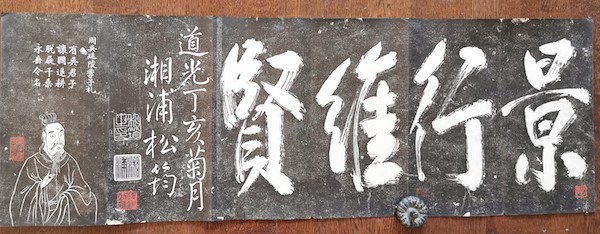 景行維賢
道光丁亥菊月
湘浦松筠
周吳延陵季子札
有吳君子
讓國退耕
脫屣千乘
永垂令名